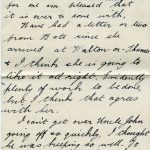 for me am pleased that
it is over & done with.
Have had a letter or two
from Bate since she
arrived at Walton-on-Thames
& I think she is going to
like it all right. Evidently
plenty of work to be done
but I think that agrees
with her.
I can't get over Uncle John
going off so quickly, I thought
he was keeping so well. To